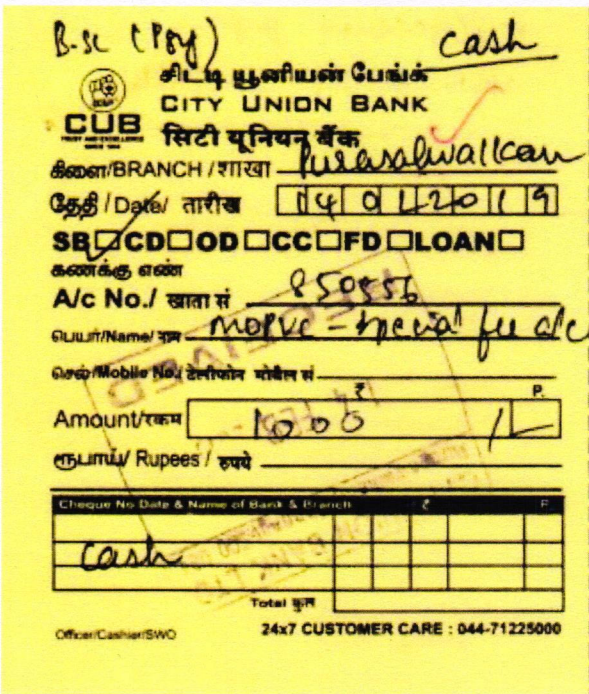 B.Sc (Psy) cash
சிட்டி யூனியன் பேங்க்
CITY UNION BANK
CUB
TRUST AND EXCELLENCE
SINCE 1904
सिटी यूनियन बैंक
கிளை/BRANCH / शाखा Purasaiwalkam
தேதி / Date/ तारीख
SB CD OD CC FD LOAN
கணக்கு எண்
A/c No./ खाता सं 850556
பெயர்/Name/ नाम MOPVC - Special fee a/c
செல்/Mobile No./ टेलीफोन मोबैल सं
₹ P.
Amount/रकम 1000 /-
ரூபாய்/ Rupees / रुपये
Cheque No Date & Name of Bank & Branch ₹ P.
Cash
Total कुल
Officer/Cashier/SWO 24x7 CUSTOMER CARE : 044-71225000
RECEIVED